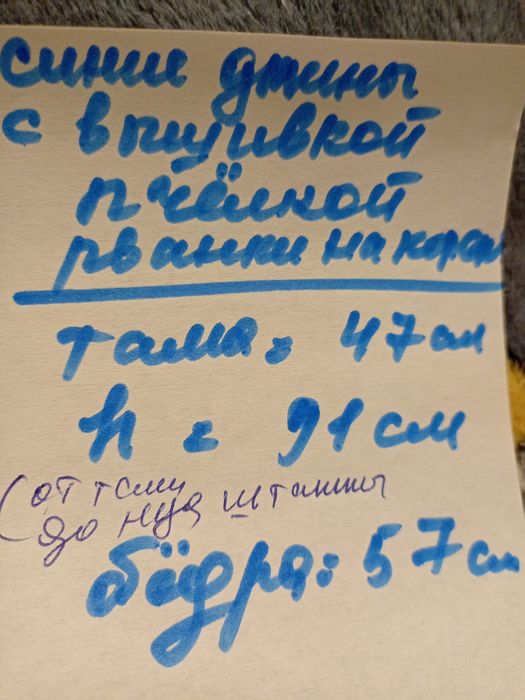 синие джины
с вышивкой
пчёлкой
рванки на
талия = 47 см
h = 91 см
(от талии
до низа штанины
бёдра: 57 см